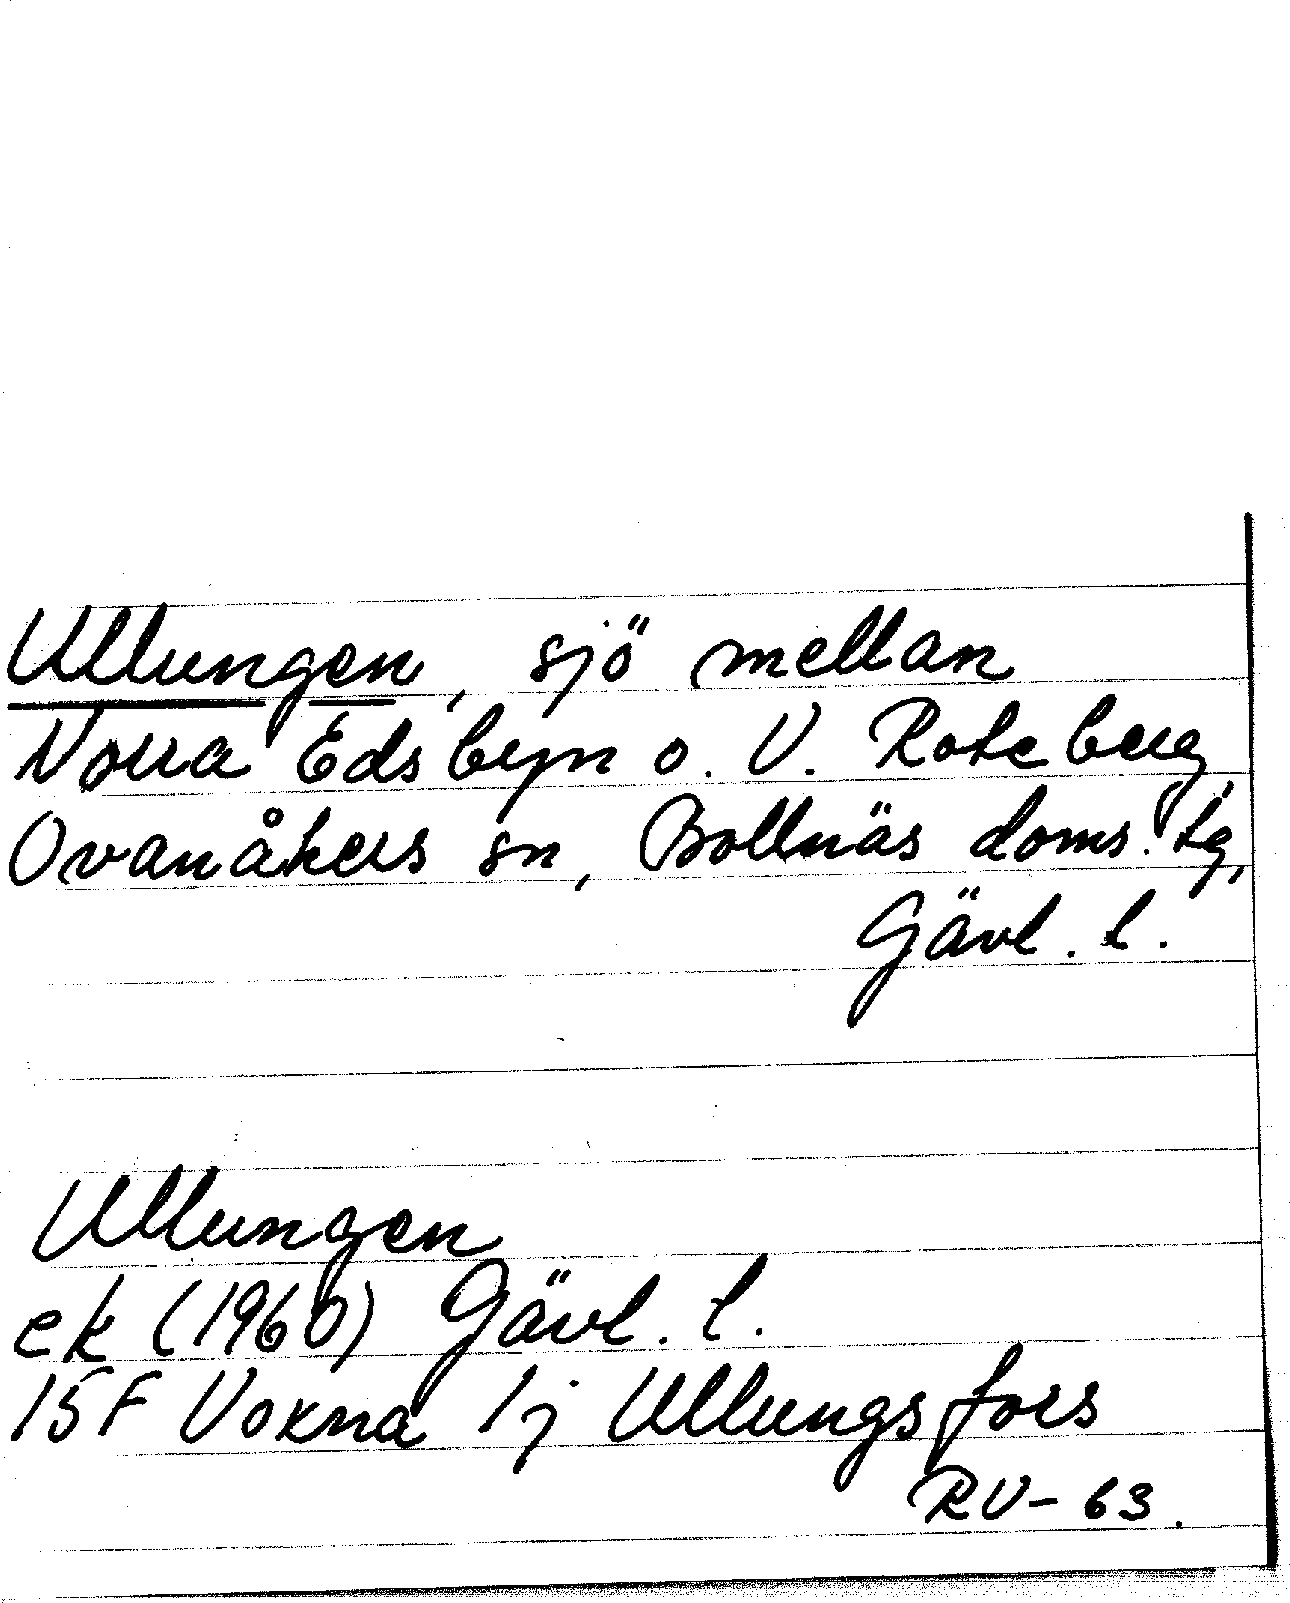 Ullungen, sjö mellan
Norra Edsbyn o. V. Roteberg,
Ovanåkers sn, Bollnäs doms. tg,
Gävl. l.
Ullungen
ek (1960) Gävl. l.
15F Voxna 1j Ullungsfors
RV-63.